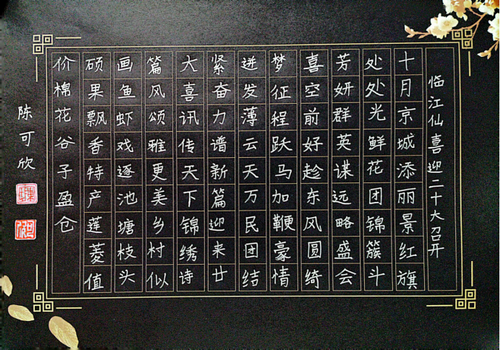 临江仙喜迎二十大召开
十月京城添丽景红旗
处处光鲜花团锦簇斗
芳妍群英谋远略盛会
喜空前好趁东风圆绮
梦征程跃马加鞭豪情
迸发薄云天万民团结
紧奋力谱新篇迎来廿
大喜讯传天下锦绣诗
篇风颂雅更美乡村似
画鱼虾戏逐池塘枝头
硕果飘香特产莲菱值
价棉花谷子盈仓
陈可欣